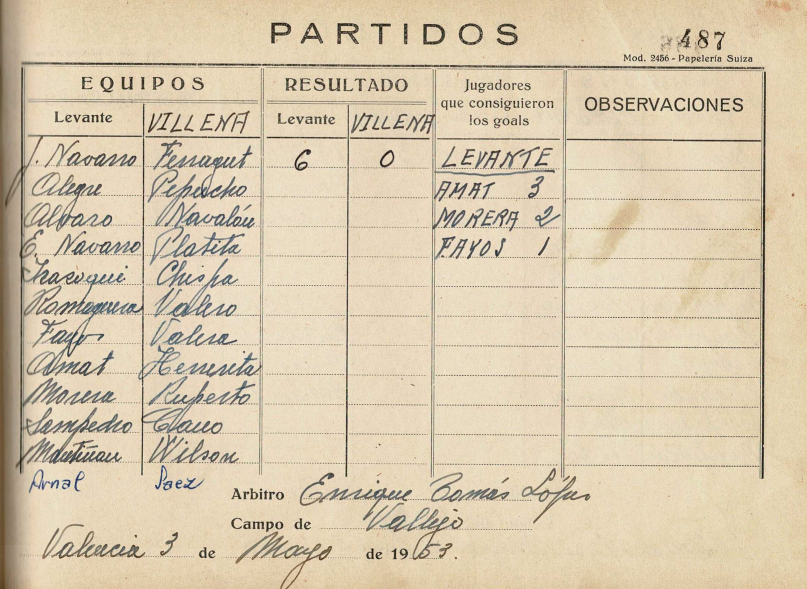 PARTIDOS
487
Mod. 2456 - Papelería Suiza
EQUIPOS RESULTADO Jugadores que consiguieron los goals OBSERVACIONES
Levante VILLENA Levante VILLENA
J. Navarro Ferragut 6 0 LEVANTE
Alegre Pepucho AMAT 3
Alvaro Navalón MORERA 2
E. Navarro Platita FAYOS 1
Chispa
Romaguera Valero
Fayos Valera
Amat Herrerita
Morera Ruperto
Sampedro Cano
Wilson
Arnal Saez
Arbitro Enrique Tomás López
Campo de Vallejo
Valencia 3 de Mayo de 1953.